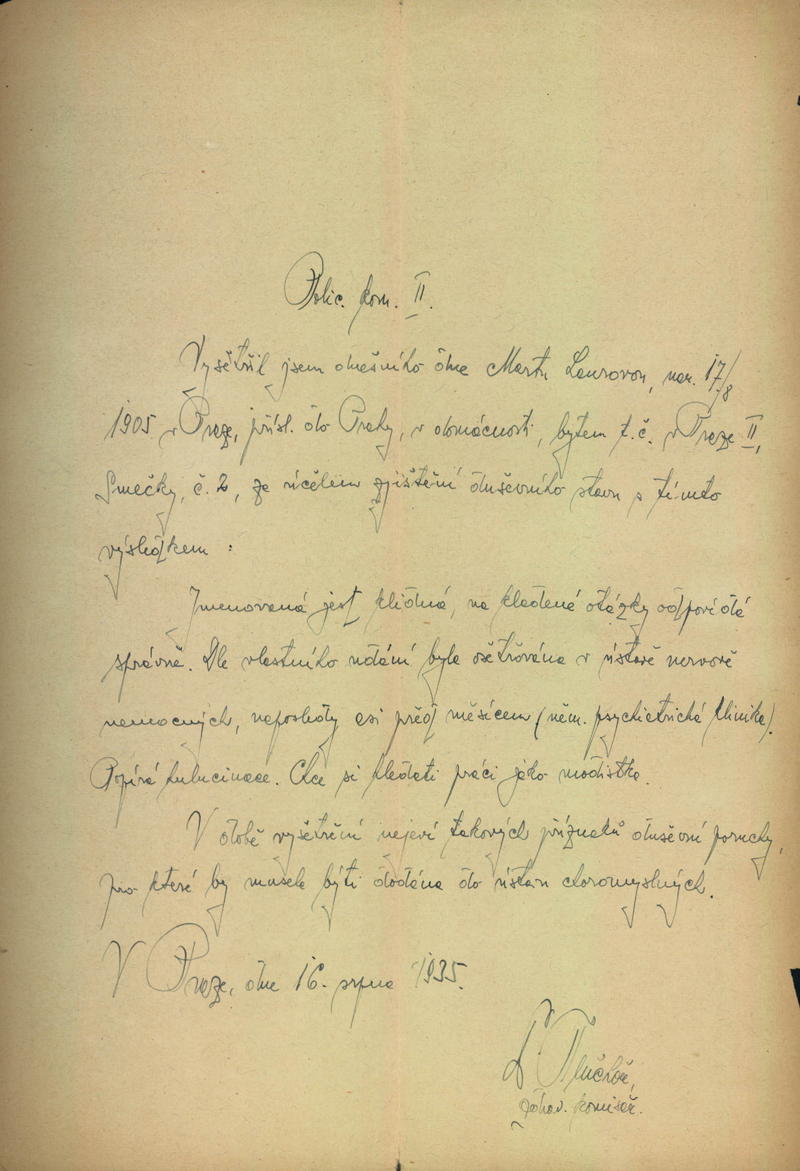 Polic. kom. II.
Vyšetřil jsem dnešního dne Martu Laurovou, nar. 17/8
1905 v Praze, přísl. do Prahy, v domácnosti, bytem t. č. v Praze II,
Smečky, č. 2, za účelem zjištění duševního stavu s tímto
výsledkem :
Jmenovaná jest klidná, na kladené otázky odpovídá
správně. Dle vlastního udání byla ošetřována v ústavě nervově
nemocných, naposledy asi před měsícem (něm. psychiatrická klinika).
Popírá halucinace. Chce si hledati práci jako modistka.
V době vyšetření nejeví takových příznaků duševní poruchy,
pro které by musela býti dodána do ústavu choromyslných.
V Praze, dne 16. srpna 1935.
zdrav. komisař.